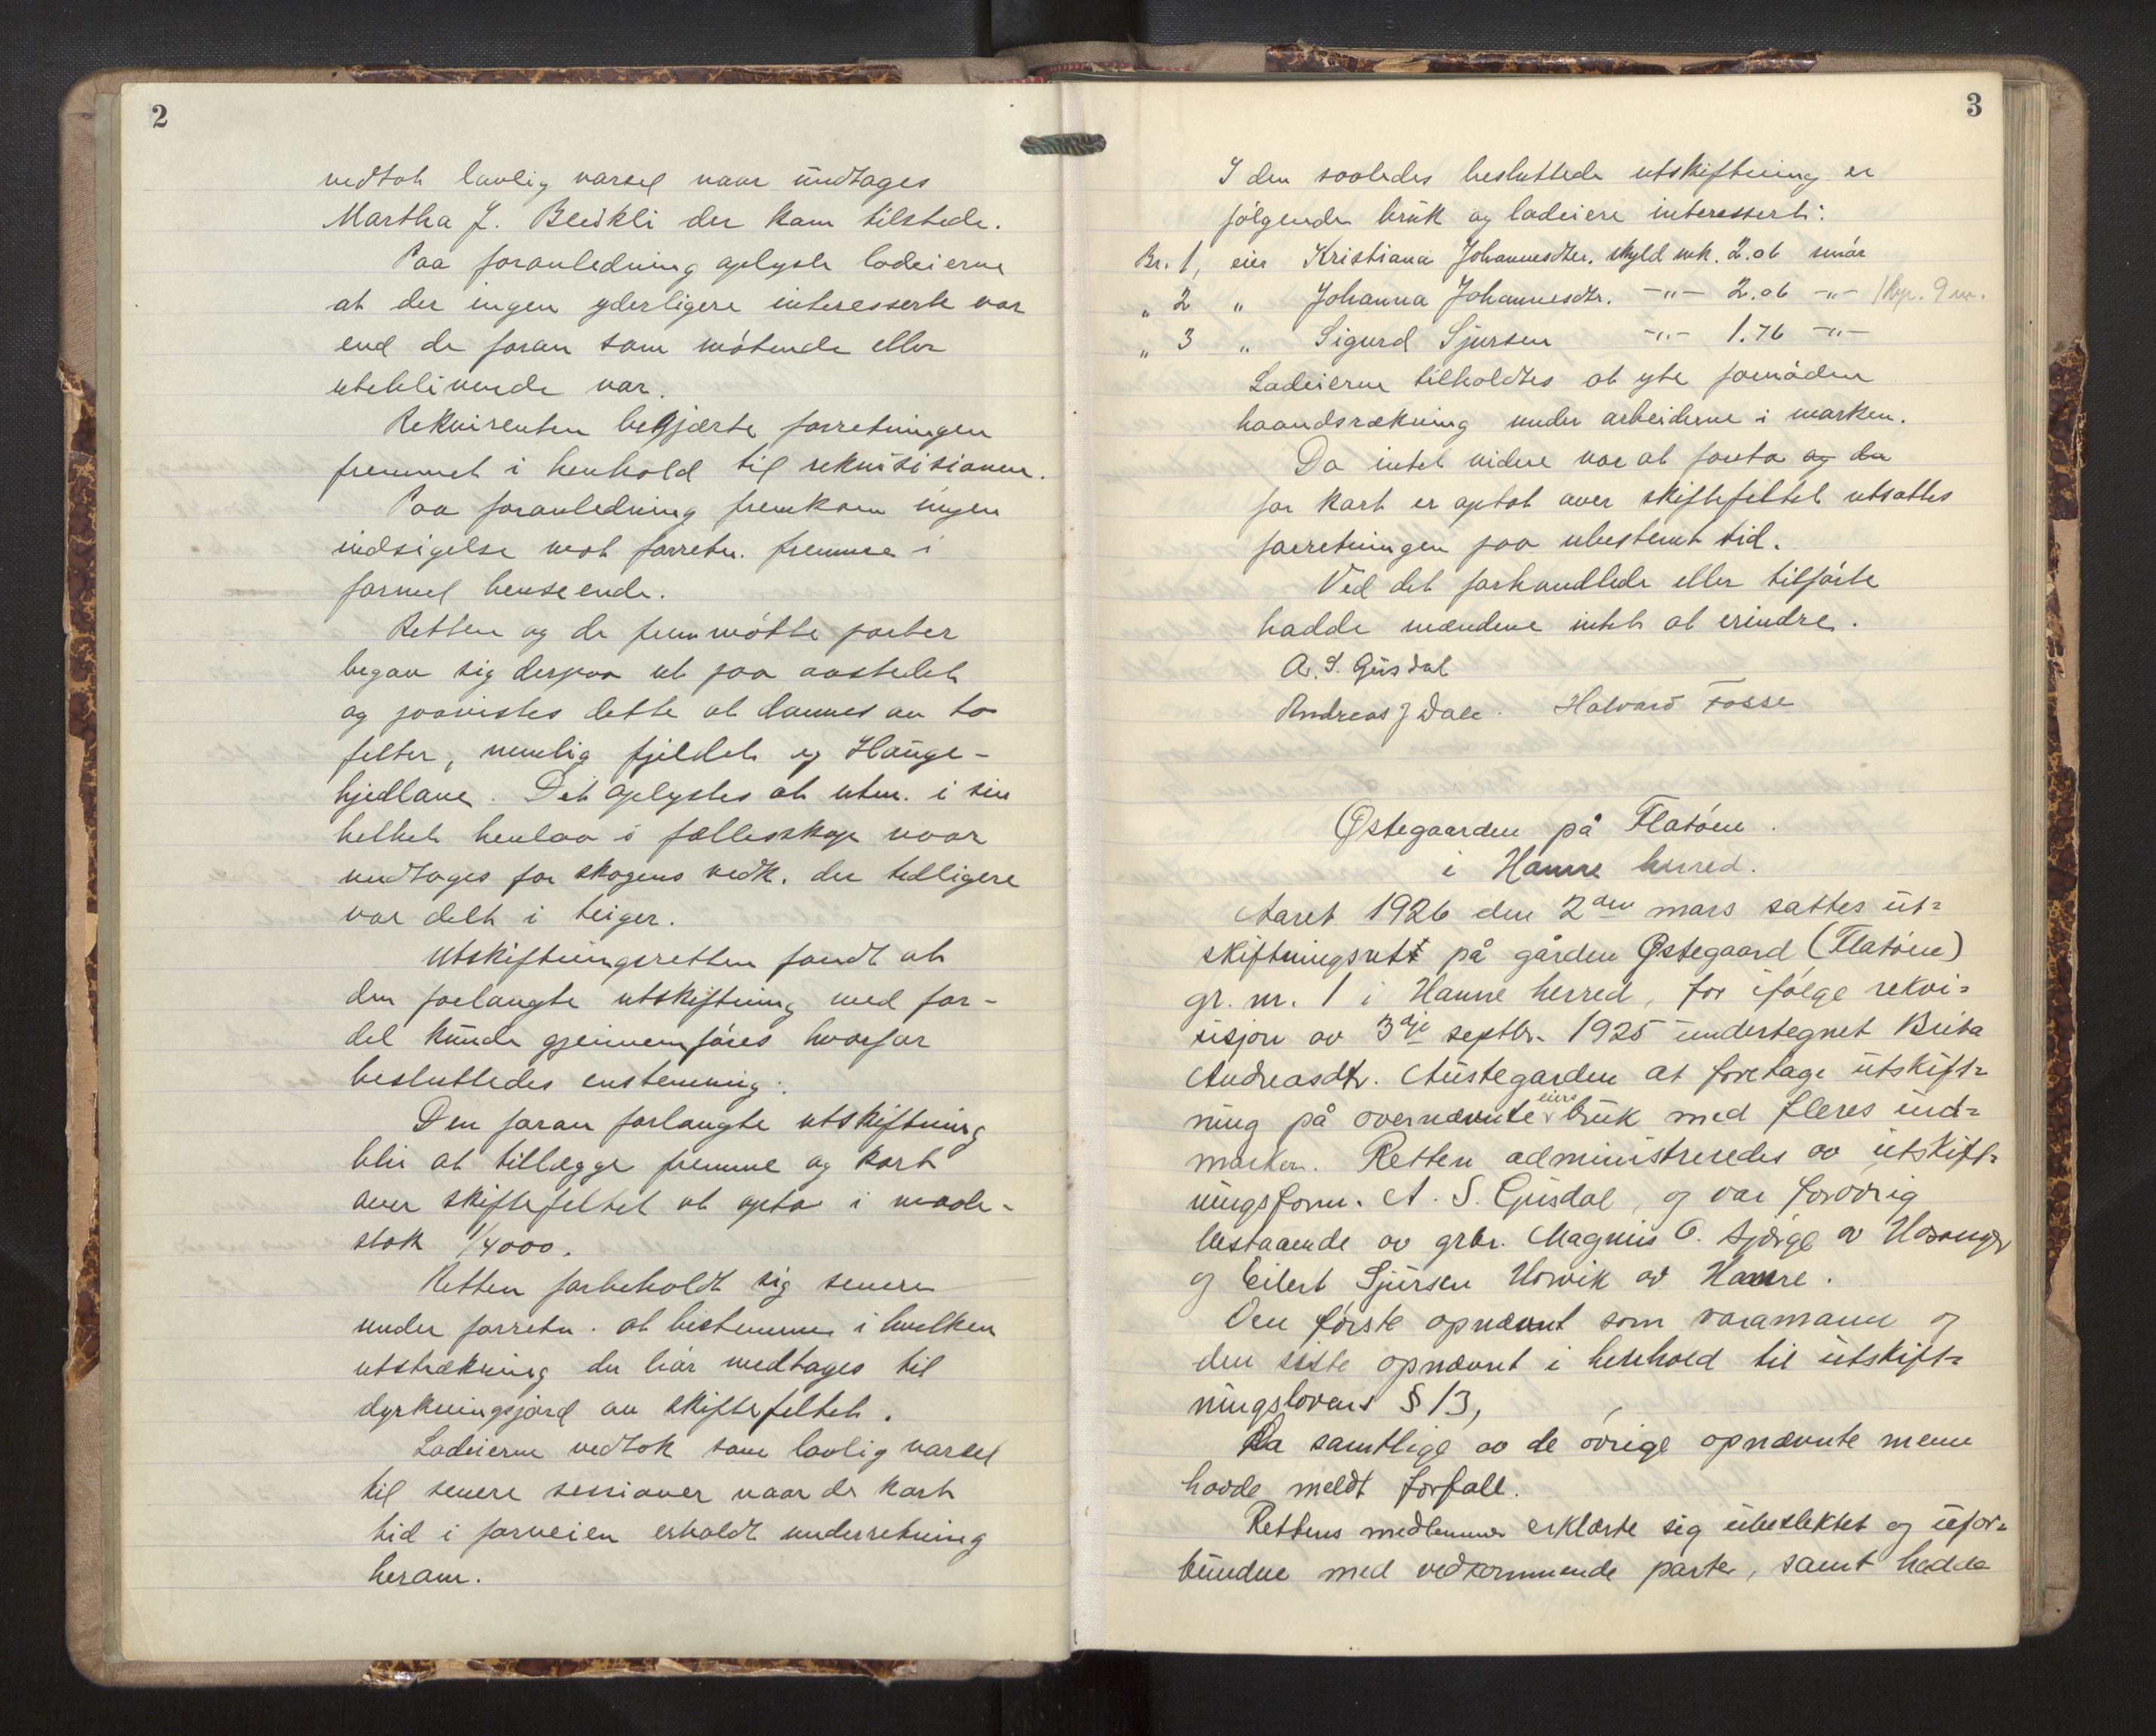 2
vedtok lavlig varsel naar undtages
Martha J. Bleikli der kam tilstede.
Paa foranledning oplyste lodeierne
at der ingen yderligere interesserte var
end de foran som møtende eller
uteblivende var.
Rekvirenten begjærte forretningen
fremmet i henhold til rekvisisionen.
Paa foranledning fremkom ingen
indsigelse mot forretn. fremme i
formel henseende.
Retten og de fremmøtte parter
begav sig derpaa ut paa aastedet
og paavistes dette at dannes av to
felter, nemlig fjeldet og Hauge-
hjedlane. Det oplystes at utm. i sin
helhet henlaa i fællesskap naar
undtages for skogens vedk. der tidligere
var delt i teiger.
Utskiftningsretten fandt at
den forlangte utskiftning med for-
del kunde gjennemføres hvorfor
besluttedes enstemmig:
Den foran forlangte utskiftning
blir at tillægge fremme og kart
over skiftefeltet at opta i maale-
stok 1/4000.
Retten forbeholdt sig senere
under forretn. at bestemme i hvilken
utstrækning der bør medtages til
dyrkningsjord av skiftefeltet.
Lodeierne vedtok som lovlig varsel
til senere sessioner naar de kort
tid i forveien erholdt underretning
herom.
3
I den saaledes besluttede utskiftning er
følgende bruk og lodeiere interessert:
Br. 1, eier Kristiana Johannesdter. skyld mk. 2.06 smør
" 2 " Johanna Johannesdtr. -"- 2.06 -"- 1 kp. 9 m.
" 3 " Sigurd Sjursen -"- 1.76 -"-
Lodeierne tilholdtes at yte fornøden
haandsrækning under arbeiderne i marken.
Da intet videre var at foreta og da
før kart er optat over skiftefeltet utsattes
forretningen paa ubestemt tid.
Ved det forhandlede eller tilførte
hadde mændene intet at erindre.
A. S. Gjisdal
Andreas J Dale. Halvard Fosse
Østegaarden på Flatøen.
i Hamre herred.
Aaret 1926 den 2den mars sattes ut=
skiftningsrett på gården Østegaard (Flatøen)
gr. nr. 1 i Hamre herred, for ifølge rekvi=
sisjon av 3dje septbr. 1925 undertegnet Brita
Andreasdtr. Austegarden at foretage utskift=
ning på overnævnte eiers bruk med fleres ind=
marker. Retten administreredes av utskift=
ningsform. A. S. Gjisdal, og var forøvrig
bestaaende av grbr. Magnus O. av Hosanger
og Eilert Sjursen Horvik av Hamre.
Den første opnævnt som varamann og
den siste opnævnt i henhold til utskift=
ningslovens § 13,
Da samtlige av de øvrige opnævnte menn
havde meldt forfall.
Rettens medlemmer erklærte sig ubeslektet og ufor=
bundne med vedkommende parter, samt hadde